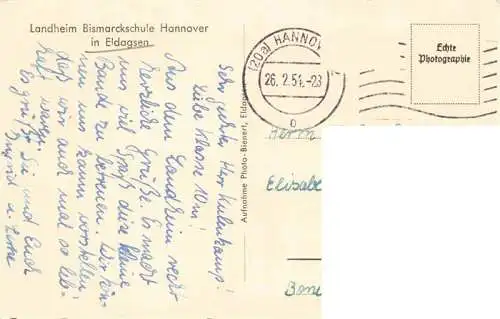 Landheim Bismarckschule Hannover
in Eldagsen
Sehr geehrter Herr Kulenkamp!
Liebe Klasse 10m!
Aus dem Landheim recht
herzliche Grüße. Es macht
uns viel Spaß diese kleine
Bande zu betreuen. Wir kön-
nen uns kaum vorstellen
daß wir auch mal so leb-
haft waren.
Es grüßt Sie und Euch
Ingrid u.
Aufnahme Photo-Bienert, Eldagsen
(20a) HANNOV
26.2.51.-23
Echte
Photographie
Herrn
Elisabe